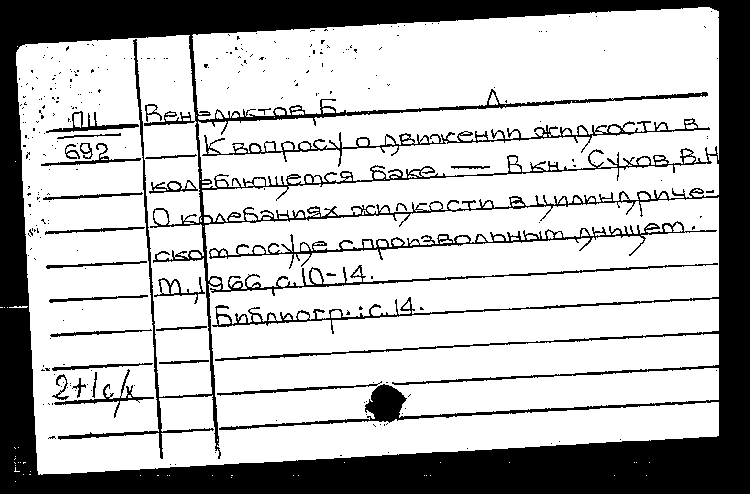 ПII Венедиктов, Б. Л.
692 К вопросу о движении жидкости в
колеблющемся баке. — В кн.: Сухов, В.Н
О колебаниях жидкости в цилиндриче-
ском сосуде с произвольным днищем.
М., 1966, с. 10-14.
Библиогр.: с. 14.
2+1 с/х